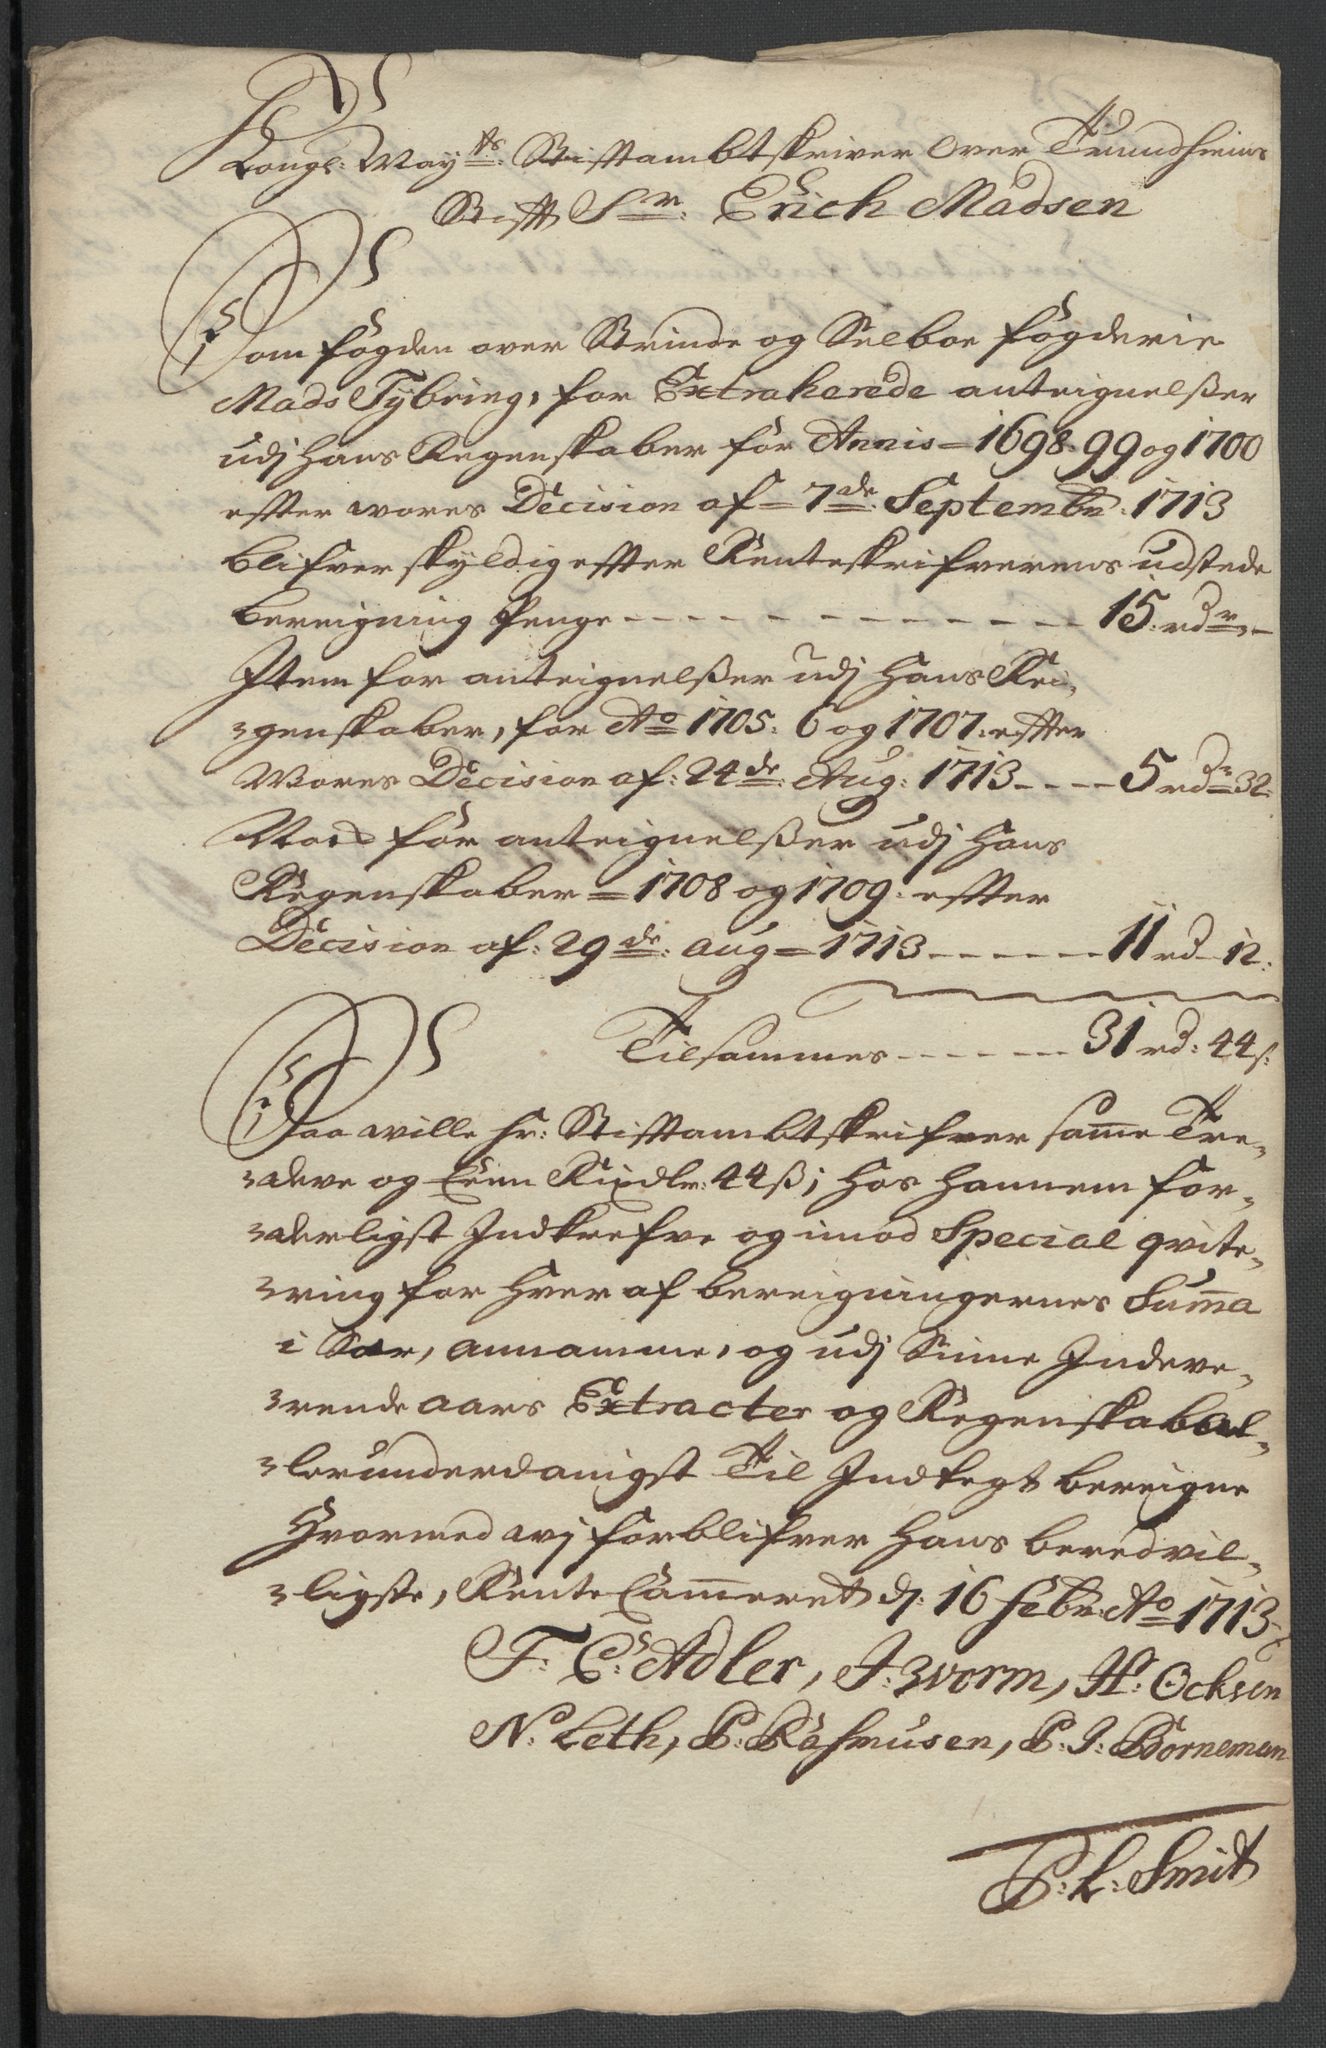 Kongl: May.ts Stiftambtskriver over Trundhiems
Stift Sr. Erich Madsen
Som fogden over Strinde og Selboe fogderie
Mads Tybring, for Extraherede anteignelßer
udj hans Regenskaber for Annis = 1698. 99 og 1700
effter wores Decision af = 7de Septembr. 1713
blifver skyldig effter Renteskrifverens udstede
bereigning Penge - - - - - - - - - - 15 rdr. -
Item for anteignelßer udj hans Re-
genskaber, for Ao 1705. 6 og 1707. effter
Wores Decision af: 24de. Aug: 1713 - - - - 5 rdr 32.
Noch for anteignelßer udj hans
Regenskaber = 1708 og 1709. effter
Decision af: 29de: aug = 1713 - - - - - - 11 rd 12:
Tilsammes - - - - - - 31 rd: 44 s:
Saa wille hr: Stiftambtskrifver samme Tre-
deve og Een Rixdlr: 44 ß; hos hannem for-
derligst Indkrefve og imod Special qvite-
ring for hver af bereigningernes Summa
i Sær, annamme, og udj Sinne Indeve-
rende aars Extracter og Regenskab al-
lerunderdanigst Til Indtegt bereigne
Hvormed wj forblifver hans beredvil-
ligste, Rente Cammeret dj: 16 febr: Ao 1713
F: C: Adler, J: Worm, H: Ocksen
N. Leth, P: Rasmusen, P: J: Borneman
P: L: Smidt